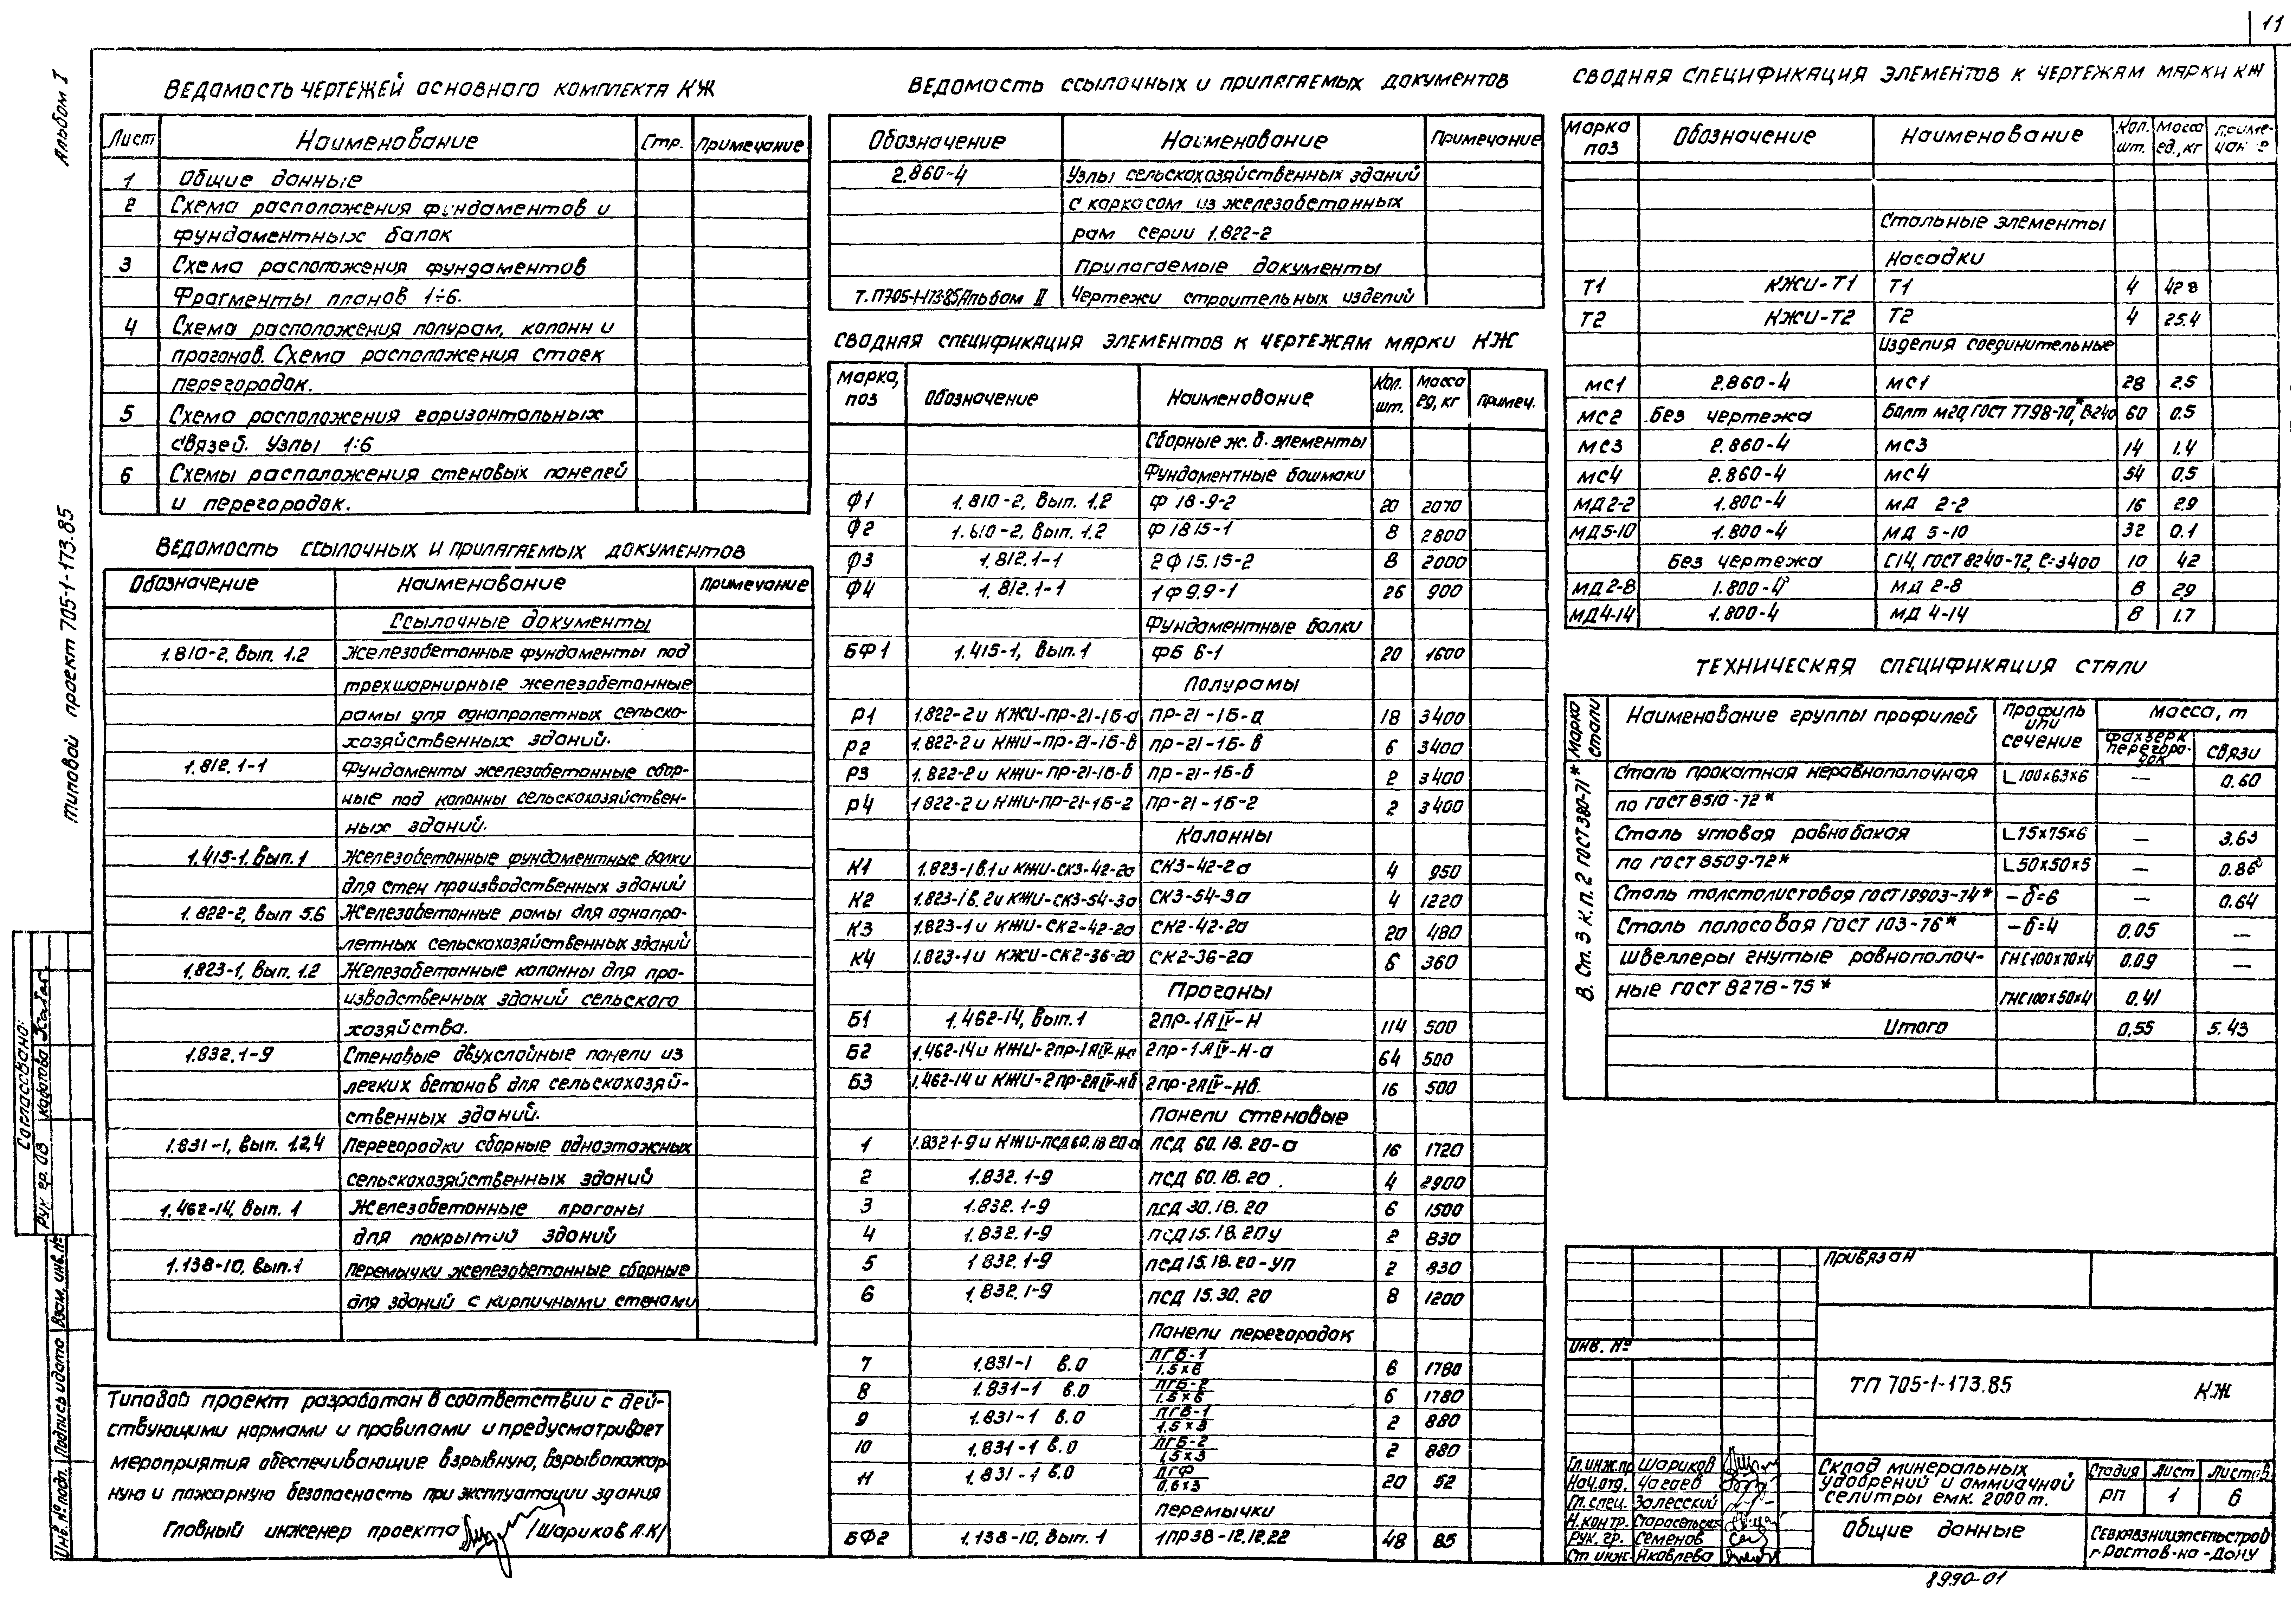 11
Альбом I
типовой проект 705-1-173.85
Ведомость чертежей основного комплекта КЖ
Лист Наименование Стр. Примечание
1 Общие данные
2 Схема расположения фундаментов и
фундаментных балок
3 Схема расположения фундаментов
Фрагменты планов 1÷6.
4 Схема расположения полурам, колонн и
прогонов. Схема расположения стоек
перегородок.
5 Схема расположения горизонтальных
связей. Узлы 1÷6
6 Схемы расположения стеновых панелей
и перегородок.
Ведомость ссылочных и прилагаемых документов
Обозначение Наименование Примечание
Ссылочные документы
1.810-2, вып. 1.2 Железобетонные фундаменты под
трехшарнирные железобетонные
рамы для однопролетных сельско-
хозяйственных зданий.
1.812.1-1 Фундаменты железобетонные сбор-
ные под колонны сельскохозяйствен-
ных зданий.
1.415-1. вып. 1 Железобетонные фундаментные балки
для стен производственных зданий
1.822-2, вып 5.6 Железобетонные рамы для однопро-
летных сельскохозяйственных зданий
1.823-1, вып. 1.2 Железобетонные колонны для про-
изводственных зданий сельского
хозяйства.
1.832.1-9 Стеновые двухслойные панели из
легких бетонов для сельскохозяй-
ственных зданий.
1.831-1, вып. 1.2,4 Перегородки сборные одноэтажных
сельскохозяйственных зданий
1.462-14, вып. 1 Железобетонные прогоны
для покрытий зданий
1.138-10, вып.1 Перемычки железобетонные сборные
для зданий с кирпичными стенами
Типовой проект разработан в соответствии с дей-
ствующими нормами и правилами и предусматривает
мероприятия обеспечивающие взрывную, взрывопожар-
ную и пожарную безопасность при эксплуатации здания
Главный инженер проекта /Шариков А.К/
Согласовано:
Рук. гр. ОВ Кафтова
Инв.№ подл. Подпись и дата Взам. инв.№
Ведомость ссылочных и прилагаемых документов
Обозначение Наименование Примечание
2.860-4 Узлы сельскохозяйственных зданий
с каркасом из железобетонных
рам серии 1.822-2
Прилагаемые документы
Т.П705-1-173.85 Альбом II Чертежи строительных изделий
Сводная спецификация элементов к чертежам марки КЖ
Марка, поз Обозначение Наименование Кол. шт. Масса ед, кг Примеч.
Сборные ж. б. элементы
Фундаментные башмаки
Ф1 1.810-2, вып. 1.2 Ф 18-9-2 20 2070
Ф2 1.810-2, вып. 1.2 Ф 18 15-1 8 2800
Ф3 1.812.1-1 2Ф 15.15-2 8 2000
Ф4 1.812.1-1 1Ф 9.9-1 26 900
Фундаментные балки
БФ1 1.415-1, вып. 1 ФБ 6-1 20 1600
Полурамы
Р1 1.822-2 и КЖИ-ПР-21-1Б-а ПР-21-1Б-а 18 3400
Р2 1.822-2 и КЖИ-ПР-21-1Б-в ПР-21-1Б-в 6 3400
Р3 1.822-2 и КЖИ-ПР-21-1Б-б ПР-21-1Б-б 2 3400
Р4 1.822-2 и КЖИ-ПР-21-1Б-2 ПР-21-1Б-2 2 3400
Колонны
К1 1.823-1 в.1 и КЖИ-СК3-42-2а СК3-42-2а 4 950
К2 1.823-1 в. 2 и КЖИ-СК3-54-3а СК3-54-3а 4 1220
К3 1.823-1 и КЖИ-СК2-42-2а СК2-42-2а 20 480
К4 1.823-1 и КЖИ-СК2-36-2а СК2-36-2а 6 360
Прогоны
Б1 1.462-14, вып. 1 2ПР-1АIV-Н 114 500
Б2 1.462-14 и КЖИ-2пр-1АIV-Н-а 2пр-1АIV-Н-а 64 500
Б3 1.462-14 и КЖИ-2пр-2АIV-Нб 2пр-2АIV-Нб. 16 500
Панели стеновые
1 1.832 1-9 и КЖИ-ПСД 60.18 20-а ПСД 60.18.20-а 16 1720
2 1.832.1-9 ПСД 60.18.20 4 2900
3 1.832.1-9 ПСД 30.18.20 6 1500
4 1.832.1-9 ПСД 15.18.20у 2 830
5 1 832.1-9 ПСД 15.18.20-УП 2 830
6 1.832.1-9 ПСД 15.30.20 8 1200
Панели перегородок
7 1.831-1 в.0 ПГБ-1 1,5×6 6 1780
8 1.831-1 в.0 ПГБ-2 1,5×6 6 1780
9 1.831-1 в.0 ПГБ-1 1,5×3 2 880
10 1.831-1 в.0 ПГБ-2 1,5×3 2 880
11 1.831-1 в.0 ПГФ 0,6×3 20 52
Перемычки
БФ2 1.138-10, вып. 1 1ПР38-12.12.22 48 85
Сводная спецификация элементов к чертежам марки КЖ
Марка поз Обозначение Наименование Кол. шт. Масса ед., кг Примечание
Стальные элементы
Насадки
Т1 КЖИ-Т1 Т1 4 42 8
Т2 КЖИ-Т2 Т2 4 25.4
Изделия соединительные
МС1 2.860-4 МС1 28 2.5
МС2 Без чертежа Болт М20, ГОСТ 7798-70*, ℓ=240 60 0.5
МС3 2.860-4 МС3 14 1.4
МС4 2.860-4 МС4 54 0.5
МД 2-2 1.800-4 МД 2-2 16 2.9
МД5-10 1.800-4 МД 5-10 32 0.1
Без чертежа С14, ГОСТ 8240-72, ℓ=3400 10 42
МД 2-8 1.800-4 МД 2-8 8 2.9
МД4-14 1.800-4 МД 4-14 8 1.7
Техническая спецификация стали
Марка стали Наименование группы профилей Профиль или сечение Масса, т
фахверк перегородок связи
В. Ст. 3 к.п. 2 ГОСТ 380-71*
Сталь прокатная неравнополочная ∟100×63×6 — 0.60
по ГОСТ 8510-72*
Сталь угловая равнобокая ∟75×75×6 — 3.63
по ГОСТ 8509-72* ∟50×50×5 — 0.86
Сталь толстолистовая ГОСТ 19903-74* -δ=6 — 0.64
Сталь полосовая ГОСТ 103-76* -δ=4 0.05 —
Швеллеры гнутые равнополоч- ГНС100×70×4 0.09 —
ные ГОСТ 8278-75* ГНС100×50×4 0.41
Итого 0.55 5.43
Привязан
Инв. №
ТП 705-1-173.85 КЖ
Гл.инж.пр Шариков
Нач.отд. Чагаев
Гл. спец. Залесский
Н.контр. Старосельская
Рук. гр. Семенов
Ст инж. Яковлева
Склад минеральных
удобрений и аммиачной
селитры емк. 2000т.
Стадия Лист Листов
РП 1 6
Общие данные
СЕВКАВЗНИИЭПСЕЛЬСТРОЙ
г. Ростов-на-Дону
8990-01